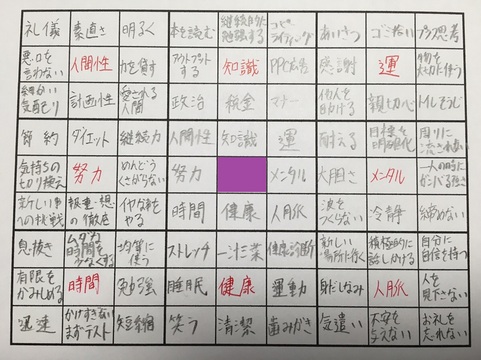 礼儀 素直さ 明るく 本を読む 継続的に勉強する コピーライティング あいさつ ゴミひろい プラス思考
悪口を言わない 人間性 力を貸す アウトプットする 知識 PPC広告 感謝 運 物を大切に使う
細かい気配り 計画性 愛される人間 政治 税金 マナー 他人を助ける 親切心 トイレそうじ
節約 ダイエット 継続力 人間性 知識 運 耐える 目標を明確化 周りに流されない
気持ちの切り換え 努力 めんどうくさがらない 努力 メンタル 大胆さ メンタル 一人の時にガンバる強さ
新しい事への挑戦 報・連・想の徹底 イヤな事をやる 時間 健康 人脈 波をつくらない 冷静 締めない
息抜き ムダな時間をなくする 均等に使う ストレッチ 一汁三菜 健康診断 新しい場所に行く 積極的に話しかける 自分に自信を持つ
有限をかみしめる 時間 勉強 睡眠 健康 運動 身だしなみ 人脈 人を見下さない
迅速 かけすぎないまずテスト 短縮 笑う 清潔 歯みがき 気遣い 不安を与えない お礼を忘れない